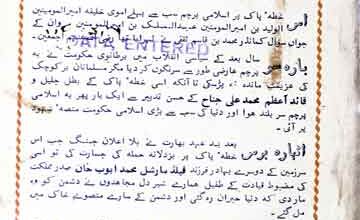 خطہ پاک پر اسلامی پرچم سب سے پہلے اموی خلیفہ امیرالمومنین
الولید بن امیرالمومنین عبدالملک بن امیرالمومنین مروان کے
جواں سال کمانڈر محمد بن قاسم ثقفی نے لہرایا تھا
DATA ENTERED
بارہ سو سال بعد کے سیاسی انقلاب میں برطانوی حکومت نے یہ
پرچم عارضی طور سے سرنگوں کر دیا مگر مسلمانان برکوچک
کی تا آنکہ اسی خطہ پاک کے بطل جلیل و
قائد اعظم محمد علی جناح کے حسن تدبیر سے ایک بار پھر یہ اسلامی
پرچم سر بلند ہوا اور دنیا کی سب سے بڑی اسلامی حکومت منصہ شہود
پر آئی۔
اٹھارہ برس بعد ہند عہد بھارت نے بلا اعلان جنگ جب اس
خطہ پاک پر بزدلانہ حملہ کی جسارت کی تو اسی
سرزمین کے دوسرے بہادر فرزند فیلڈ مارشل محمد ایوب خان صدر مملکت
کی مضبوط قیادت کے طفیل ہمارے شیر دل مجاہدوں نے دشمن کو وہ
مار دی کہ دنیا حیران رہ گئی اور دشمن کے سارے منصوبے خاک میں
مل گئے۔